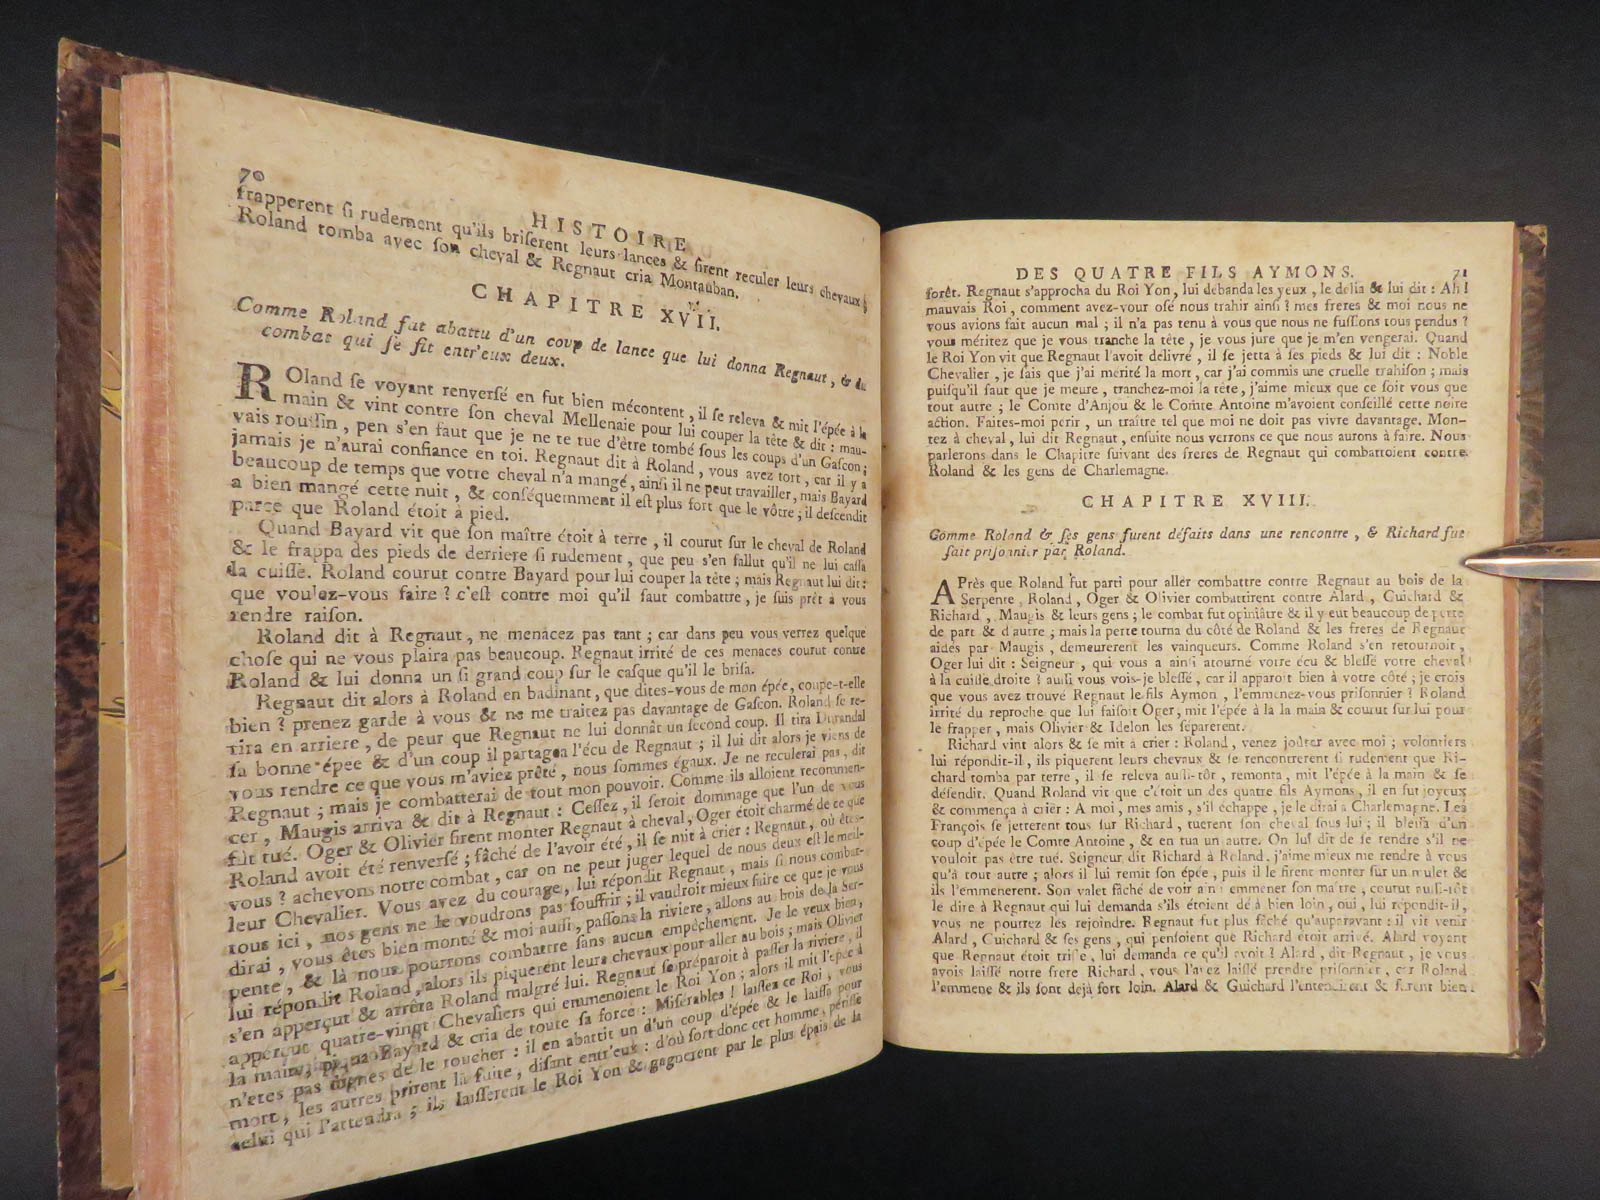 70
HISTOIRE
frapperent ſi rudement qu'ils briſerent leurs lances & firent reculer leurs chevaux ;
Roland tomba avec ſon cheval & Regnaut cria Montauban.
CHAPITRE XVII.
Comme Roland fut abattu d'un coup de lance que lui donna Regnaut, & du
combat qui ſe fit entr'eux deux.
ROland ſe voyant renverſé en fut bien mécontent, il ſe releva & mit l'épée à la
main & vint contre ſon cheval Mellenaie pour lui couper la tête & dit : mau-
vais rouſſin, pen s'en faut que je ne te tue d'être tombé ſous les coups d'un Gaſcon ;
jamais je n'aurai confiance en toi. Regnaut dit à Roland, vous avez tort, car il y a
beaucoup de temps que votre cheval n'a mangé, ainſi il ne peut travailler, mais Bayard
a bien mangé cette nuit, & conſéquemment il eſt plus fort que le vôtre ; il deſcendit
parce que Roland étoit à pied.
Quand Bayard vit que ſon maître étoit à terre, il courut ſur le cheval de Roland
& le frappa des pieds de derriere ſi rudement, que peu s'en fallut qu'il ne lui caſſa
la cuiſſe. Roland courut contre Bayard pour lui couper la tête ; mais Regnaut lui dit :
que voulez-vous faire ? c'eſt contre moi qu'il faut combattre, je ſuis prêt à vous
rendre raiſon.
Roland dit à Regnaut, ne menacez pas tant ; car dans peu vous verrez quelque
choſe qui ne vous plaira pas beaucoup. Regnaut irrité de ces menaces courut contre
Roland & lui donna un ſi grand coup ſur le caſque qu'il le briſa.
Regnaut dit alors à Roland en badinant, que dites-vous de mon épée, coupe-t-elle
bien ? prenez garde à vous & ne me traitez pas davantage de Gaſcon. Roland ſe re-
tira en arriere, de peur que Regnaut ne lui donnât un ſecond coup. Il tira Durandal
ſa bonne épée & d'un coup il partagea l'écu de Regnaut ; il lui dit alors je viens de
vous rendre ce que vous m'aviez prêté, nous ſommes égaux. Je ne reculerai pas, dit
Regnaut ; mais je combatterai de tout mon pouvoir. Comme ils alloient recommen-
cer, Maugis arriva & dit à Regnaut : Ceſſez, il ſeroit dommage que l'un de vous
fût tué. Oger & Olivier firent monter Regnaut à cheval, Oger étoit charmé de ce que
Roland avoit été renverſé ; fâché de l'avoir été, il ſe mit à crier : Regnaut, où êtes-
vous ? achevons notre combat, car on ne peut juger lequel de nous deux eſt le meil-
leur Chevalier. Vous avez du courage, lui répondit Regnaut, mais ſi nous combat-
tous ici, nos gens ne le voudrons pas ſouffrir ; il vaudroit mieux faire ce que je vous
dirai, vous êtes bien monté & moi auſſi, paſſons la riviere, allons au bois de la Ser-
pente, & là nous pourrons combattre ſans aucun empêchement. Je le veux bien,
lui répondit Roland, alors ils piquerent leurs chevaux pour aller au bois ; mais Olivier
s'en apperçut & arrêta Roland malgré lui. Regnaut ſe préparoit à paſſer la riviere, il
apperçut quatre-vingt Chevaliers qui emmenoient le Roi Yon ; alors il mit l'épée à
la main, piqua Bayard & cria de toute ſa force : Miſérables ! laiſſez ce Roi, vous
n'êtes pas dignes de le toucher : il en abattit un d'un coup d'épée & le laiſſa pour
mort, les autres prirent la fuite, diſant entr'eux : d'où ſort donc cet homme, périſſe
celui qui l'attendra ; ils laiſſerent le Roi Yon & gagnerent par le plus épais de la
DES QUATRE FILS AYMONS. 71
forêt. Regnaut s'approcha du Roi Yon, lui débanda les yeux, le délia & lui dit : Ah !
mauvais Roi, comment avez-vour oſé nous trahir ainſi ? mes freres & moi nous ne
vous avions fait aucun mal ; il n'a pas tenu à vous que nous ne fuſſons tous pendus ?
vous méritez que je vous tranche la tête, je vous jure que je m'en vengerai. Quand
le Roi Yon vit que Regnaut l'avoit delivré, il ſe jetta à ſes pieds & lui dit : Noble
Chevalier, je ſais que j'ai mérité la mort, car j'ai commis une cruelle trahiſon ; mais
puiſqu'il faut que je meure, tranchez-moi la tête, j'aime mieux que ce ſoit vous que
tout autre ; le Comte d'Anjou & le Comte Antoine m'avoient conſeillé cette noire
action. Faites-moi périr, un traître tel que moi ne doit pas vivre davantage. Mon-
tez à cheval, lui dit Regnaut, enſuite nous verrons ce que nous aurons à faire. Nous
parlerons dans le Chapitre ſuivant des freres de Regnaut qui combattoient contre
Roland & les gens de Charlemagne.
CHAPITRE XVIII.
Comme Roland & ſes gens furent défaits dans une rencontre, & Richard fut
fait priſonnier par Roland.
APrès que Roland fut parti pour aller combattre contre Regnaut au bois de la
Serpente, Roland, Oger & Olivier combattirent contre Alard, Guichard &
Richard, Maugis & leurs gens ; le combat fut opiniâtre & il y eut beaucoup de perte
de part & d'autre ; mais la perte tourna du côté de Roland & les freres de Regnaut
aidés par Maugis, demeurerent les vainqueurs. Comme Roland s'en retournoit,
Oger lui dit : Seigneur, qui vous a ainſi atourné votre écu & bleſſé votre cheval
à la cuiſſe droite ? auſſi vous vois-je bleſſé, car il apparoit bien à votre côté ; je crois
que vous avez trouvé Regnaut le fils Aymon, l'emmenez-vous priſonnier ? Roland
irrité du reproche que lui faiſoit Oger, mit l'épée à la main & courut ſur lui pour
le frapper, mais Olivier & Idelon les ſéparerent.
Richard vint alors & ſe mit à crier : Roland, venez joûter avec moi ; volontiers
lui répondit-il, ils piquerent leurs chevaux & ſe rencontrerent ſi rudement que Ri-
chard tomba par terre, il ſe releva auſſi-tôt, remonta, mit l'épée à la main & ſe
défendit. Quand Roland vit que c'étoit un des quatre fils Aymons, il en fut joyeux
& commença à crier : A moi, mes amis, s'il échappe, je le dirai à Charlemagne. Les
François ſe jetterent tous ſur Richard, tuerent ſon cheval ſous lui ; il bleſſa d'un
coup d'épée le Comte Antoine, & en tua un autre. On lui dit de ſe rendre s'il ne
vouloit pas être tué. Seigneur, dit Richard à Roland, j'aime mieux me rendre à vous
qu'à tout autre ; alors il lui remit ſon épée, puis il le firent monter ſur un mulet &
ils l'emmenerent. Son valet fâché de voir ainſi emmener ſon maître, courut auſſi-tôt
le dire à Regnaut qui lui demanda s'ils étoient déjà bien loin, oui, lui répondit-il,
vous ne pourrez les rejoindre. Regnaut fut plus fâché qu'auparavant : il vit venir
Alard, Guichard & ſes gens, qui penſoient que Richard étoit arrivé. Alard voyant
que Regnaut étoit triſte, lui demanda ce qu'il avoit ? Alard, dit Regnaut, je vous
avois laiſſé notre frere Richard, vous l'avez laiſſé prendre priſonnier, car Roland
l'emmene & ils ſont déjà fort loin. Alard & Guichard l'entendirent & furent bien